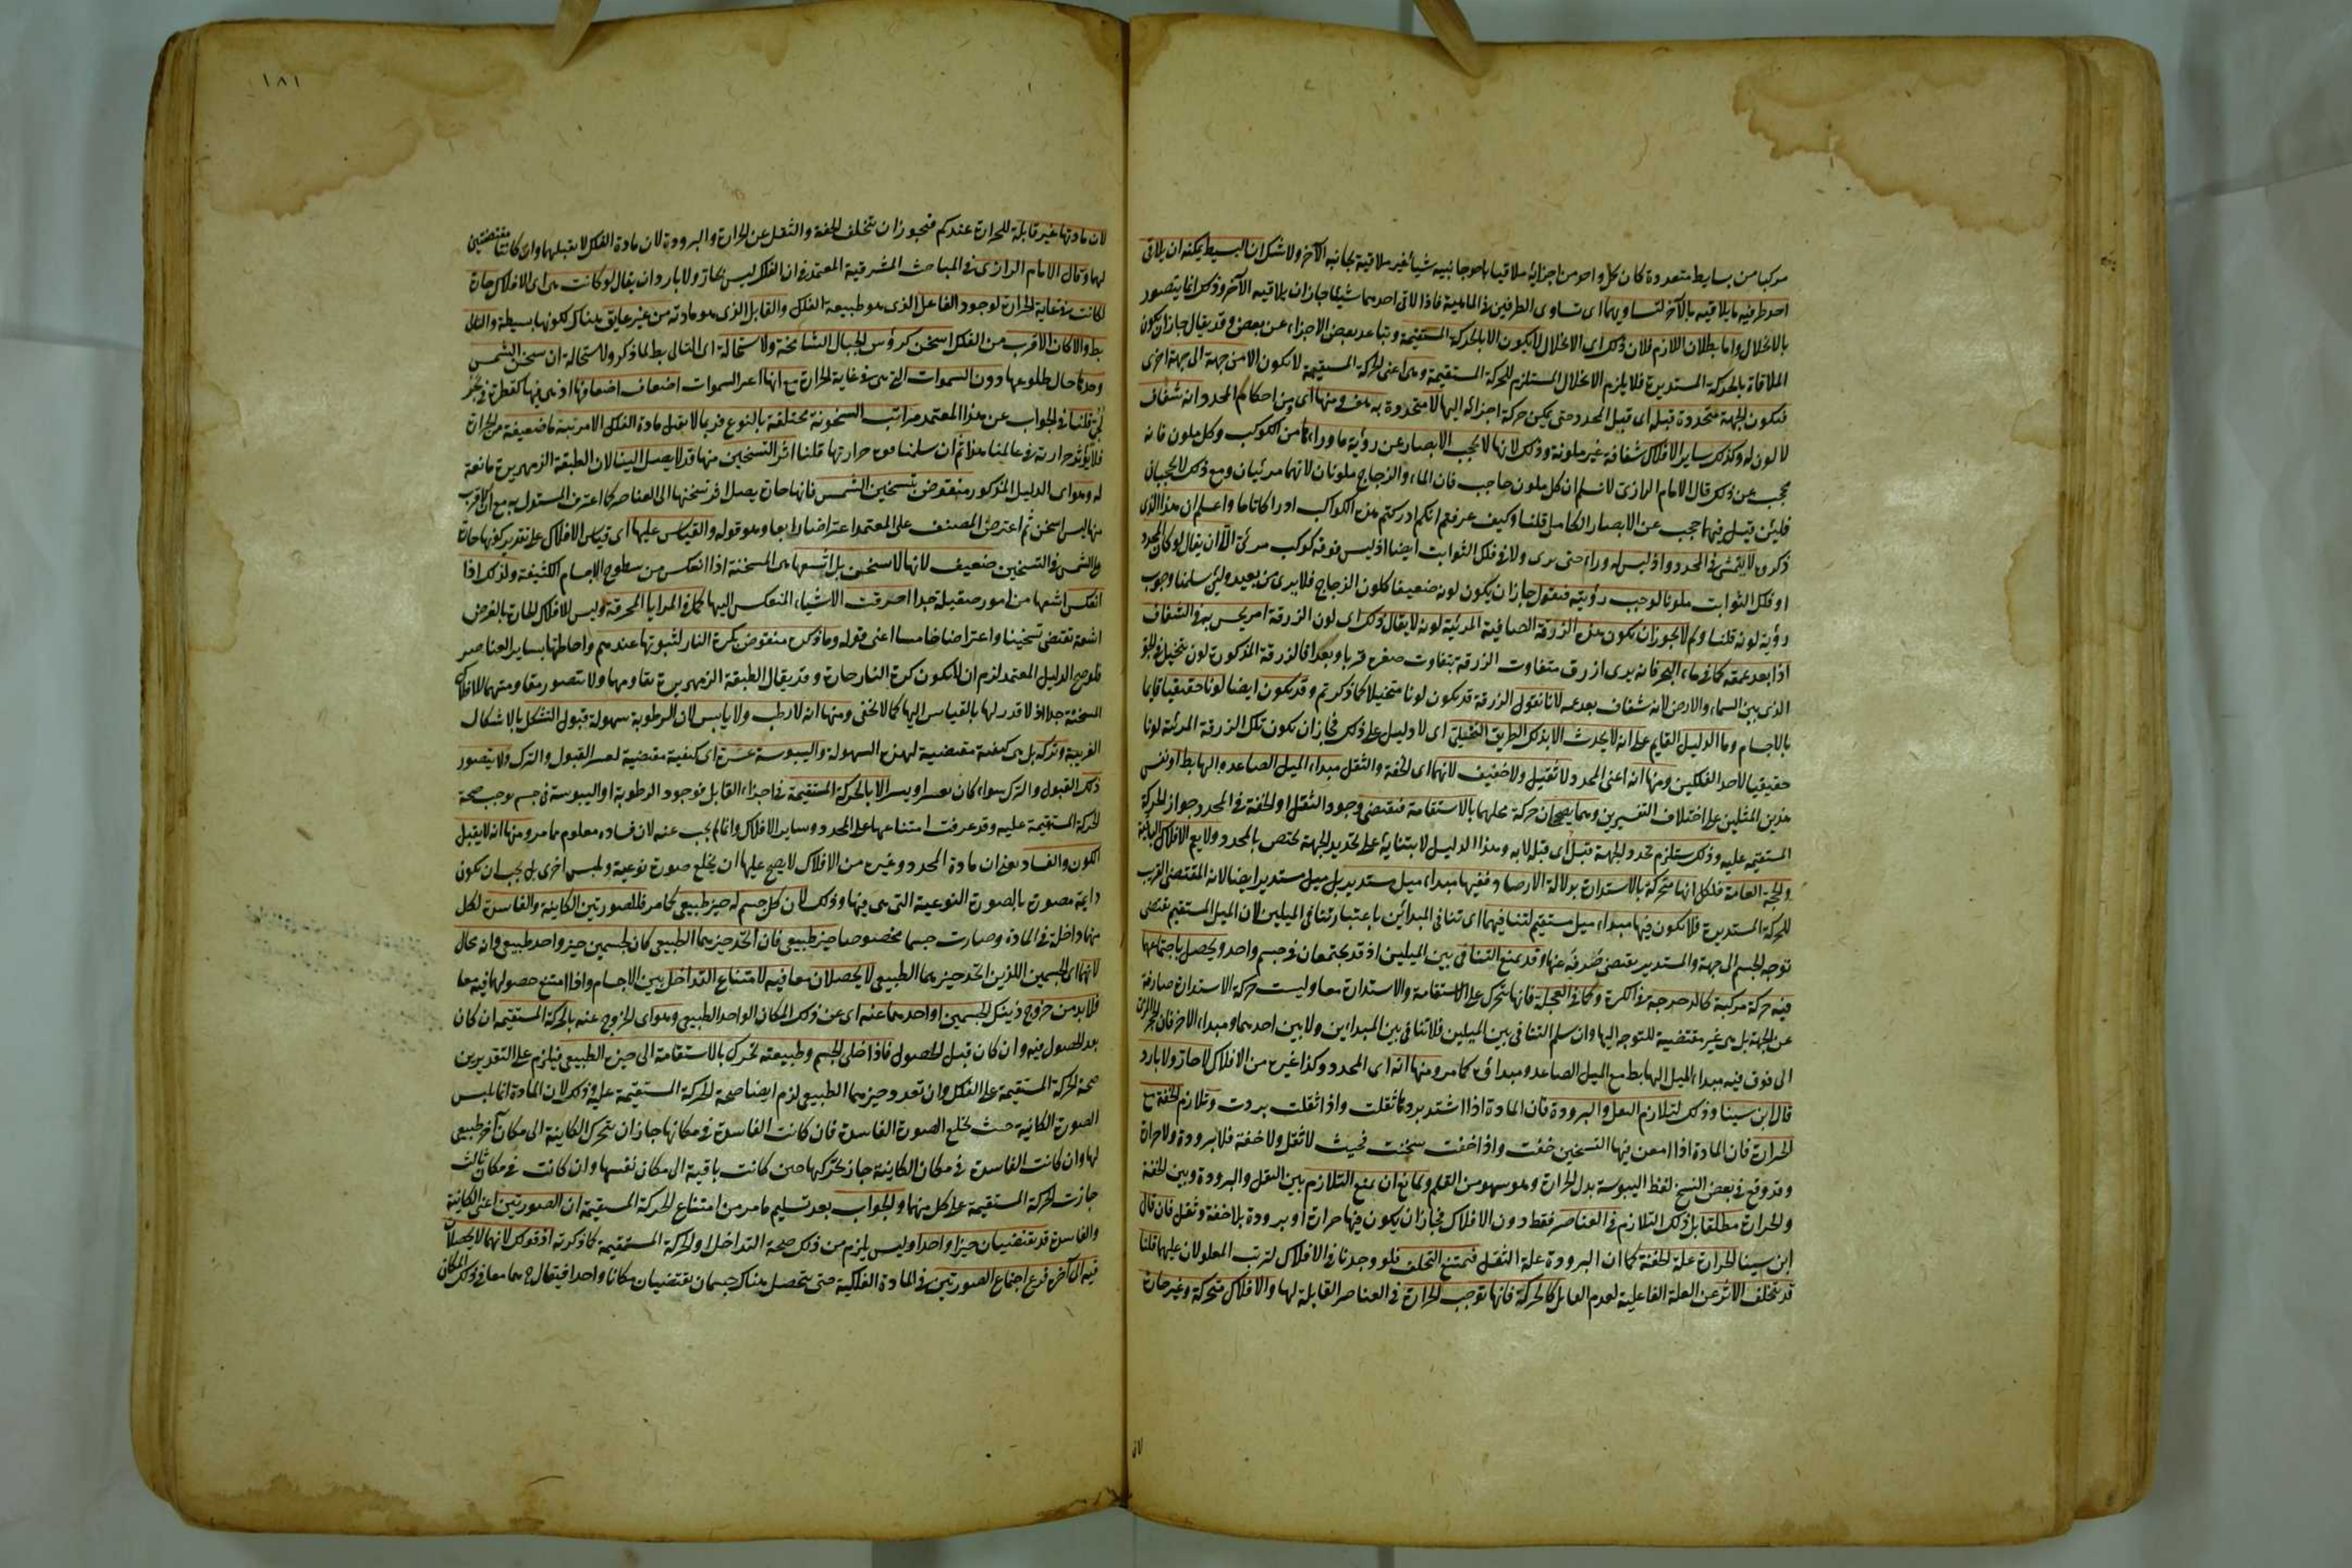 مركبا من بسايط متعددة كان كل واحد من اجزائه ملاقيا باحد جانبيه شيئا غير ملاقيه بجانبه الآخر ولا شك ان البسيط يمكنه ان يلاقي
احد طرفيه ما يلاقيه بالآخر لتساويهما اي تساوي الطرفين في الماهية فاذا لاقى احدهما شيئا جاز ان يلاقيه الآخر وذلك انما يتصور
بالانحلال واما بطلان اللازم فلان ذلك اي الانحلال لا يكون الا بالحركة المستقيمة وتباعد بعض الاجزاء عن بعض وقد يقال جاز ان يكون
الملاقاة بالحركة المستديرة فلا يلزم الانحلال المستلزم للحركة المستقيمة وهي اعني الحركة المستقيمة لا تكون الا من جهة الى جهة اخرى
فتكون الجهة متحددة قبله اي قبل المحدد حتى يمكن حركة اجزائه اليها لا متحددة به هف ومنها اي ومن احكام المحدد انه شفاف
لا لون له وكذلك ساير الافلاك شفافة غير ملونة وذلك لانها لا تحجب الابصار عن رؤية ما وراءها من الكوكب وكل ملون فانه
يحجب عن ذلك قال الامام الرازي لا نسلم ان كل ملون حاجب فان الماء والزجاج ملونان لانهما مرئيان ومع ذلك لا يحجبان
فلئن قيل فيهما حجب عن الابصار الكامل قلنا وكيف عرفتم انكم ادركتم هذه الكواكب ادراكا تاما واعلم ان هذا الذي
ذكره لا يتمشى في المحدد اذ ليس له وراء حتى يرى ولا في فلك الثوابت ايضا اذ ليس فوقه كوكب مرئي الا ان يقال لو كان المحدد
او فلك الثوابت ملونا لوجب رؤيته فنقول جاز ان يكون لونه ضعيفا كلون الزجاج فلا يرى من بعيد ولئن سلمنا وجوب
رؤية لونه قلنا ولم لا يجوز ان يكون هذه الزرقة الصافية المرئية لونه لا يقال ذلك اي لون الزرقة امر يحس به في الشفاف
اذا بعد عمقه كما في ماء البحر فانه يرى ازرق متفاوت الزرقة بتفاوت قعره قربا وبعدا فالزرقة المذكورة لون يتخيل في الجو
الذي بين السماء والارض لانه شفاف بعد عمقه لانا نقول الزرقة قد يكون لونا متخيلا كما ذكرتم وقد يكون ايضا لونا حقيقيا قايما
بالاجسام وما الدليل القايم على انه لا يحدث الا بذلك الطريق التخيلي اي لا دليل على ذلك فجاز ان يكون تلك الزرقة المرئية لونا
حقيقيا لاحد الفلكين ومنها انه اعني المحدد لا ثقيل ولا خفيف لانهما اي الخفة والثقل مبداء الميل الصاعد والهابط او نفس
هذين الميلين على اختلاف التفسيرين وبهما يصحح ان حركة محلهما بالاستقامة فيقتضي وجود الثقل او الخفة في المحدد جواز الحركة
المستقيمة عليه وذلك يستلزم تحدد الجهة قبله اي قبله لا به وهذا الدليل لابتنائه على تحديد الجهة يختص بالمحدد ولا يعم الافلاك الباقية
والحجة العامة لكل انها متحركة بالاستدارة بدلالة الارصاد ففيها مبداء ميل مستدير بل ميل مستدير ايضا لانه المقتضي القريب
للحركة المستديرة فلا يكون فيها مبداء ميل مستقيم لتنافيهما اي تنافي المبدائين باعتبار تنافي الميلين لان الميل المستقيم يقتضي
توجه الجسم الى جهة والمستدير يقتضي صرفه عنها وقد يمنع التنافي بين الميلين اذ قد يجتمعان في جسم واحد ويحصل باجتماعهما
فيه حركة مركبة كالدحرجة في الكرة وكما في العجلة فانها تتحرك على الاستقامة والاستدارة معا وليست حركة الاستدارة صارفة
عن الجهة بل هي غير مقتضية للتوجه اليها وان سلم التنافي بين الميلين فلا تنافي بين المبداءين ولا بين احدهما ومبداء الآخر فان الحجر المرمي
الى فوق فيه مبداء الميل الهابط مع الميل الصاعد ومبدائه كما مر ومنها انه اي المحدد وكذا غيره من الافلاك لا حار ولا بارد
قال ابن سينا وذلك لتلازم الثقل والبرودة فان المادة اذا اشتد بردها ثقلت واذا ثقلت بردت وتلازم الخفة مع
الحرارة فان المادة اذا امعن فيها التسخين خفت واذا خفت سخنت فحيث لا ثقل ولا خفة فلا برودة ولا حرارة
وقد وقع في بعض النسخ لفظ اليبوسة بدل الحرارة وهو سهو من القلم ولمانع ان يمنع التلازم بين الثقل والبرودة وبين الخفة
والحرارة مطلقا بل ذلك التلازم في العناصر فقط دون الافلاك فجاز ان يكون فيها حرارة او برودة بلا خفة وثقل فان قال
ابن سينا الحرارة علة الخفة كما ان البرودة علة الثقل فيمتنع التخلف فلو وجدتا في الافلاك لترتب المعلولان عليهما قلنا
قد يتخلف الاثر عن العلة الفاعلية لعدم القابل كالحركة فانها توجب الحرارة في العناصر القابلة لها والافلاك متحركة وغير حارة
لان
١٨١
لان مادتها غير قابلة للحرارة عندكم فيجوز ان يتخلف الخفة والثقل عن الحرارة والبرودة لان مادة الفلك لا يقبلهما وان كانتا مقتضيتين
لهما وقال الامام الرازي في المباحث المشرقية المعتمد في ان الفلك ليس بحار ولا بارد ان يقال لو كانت هي اي الافلاك حارة
لكانت في غاية الحرارة لوجود الفاعل الذي هو طبيعة الفلك والقابل الذي هو مادته من غير عايق هناك لكونها بسيطة والتالي
بط والا كان الاقرب من الفلك اسخن كرؤس الجبال الشامخة ولاستحالة اي التالي بط لما ذكر ولاستحالة ان يسخن الشمس
وحدها حال طلوعها دون السموات التي هي في غاية الحرارة مع انها اعني السموات اضعاف اضعافها اذ هي فيها كقطرة في بحر
لجي قلنا في الجواب عن هذا المعتمد مراتب السخونة مختلفة بالنوع فربما لا يقبل مادة الفلك الا مرتبة ما ضعيفة من الحرارة
فلا يؤثر حرارته في عالمنا هذا ثم ان سلمنا قوة حرارتها قلنا اثر التسخين منها قد لا يصل الينا لان الطبقة الزمهريرة مانعة
له وهو اي الدليل المذكور منقوض بتسخين الشمس فانها حارة يصل اثر تسخينها الى العناصر كما اعترف المستدل به مع ان الاقرب
منها ليس اسخن ثم اعترض المصنف على المعتمد اعتراضا رابعا وهو قوله والقياس عليها اي قياس الافلاك على تقدير كونها حارة
على الشمس في التسخين ضعيف لانها لا تسخن بل اشعتها هي المسخنة اذا انعكس من سطوح الاجسام الكثيفة ولذلك اذا
انعكس اشعتها من امور صقيلة جدا احرقت الاشياء المنعكس اليها كما في المرايا المحرقة وليس للافلاك الحارة بالفرض
اشعة تقتضي تسخينا واعتراضا خامسا اعني قوله وما ذكره منقوض بكرة النار لثبوتها عندهم واحاطتها بساير العناصر
فلو صح الدليل المعتمد لزم ان لا يكون كرة النار حارة وقد يقال الطبقة الزمهريرة تقاومها ولا يتصور مقاومتها للافلاك
السخنة جدا اذ لا قدر لها بالقياس اليها كما لا يخفى ومنها انه لا رطب ولا يابس لان الرطوبة سهولة قبول التشكل بالاشكال
الغريبة وتركه بل هي كيفية مقتضية لهذه السهولة واليبوسة عسره اي كيفية مقتضية لعسر القبول والترك ولا يتصور
ذلك القبول والترك سواء كان بعسر او يسر الا بالحركة المستقيمة في اجزاء القابل فوجود الرطوبة او اليبوسة في جسم يوجب صحة
الحركة المستقيمة عليه وقد عرفت امتناعها على المحدد وساير الافلاك وانما لم يجب عنه لان فساده معلوم مما مر ومنها انه لا يقبل
الكون والفساد يعني ان مادة المحدد وغيره من الافلاك لا يصح عليها ان يخلع صورة نوعية ويلبس اخرى بل يجب ان يكون
دايمة مصورة بالصورة النوعية التي هي فيها وذلك لان كل جسم له حيز طبيعي كما مر فللصورتين الكاينة والفاسدة لكل
منهما داخلة في المادة وصارت جسما مخصوصا حيز طبيعي فان اتحد حيزهما الطبيعي كان لجسمين حيز واحد طبيعي وانه محال
لانهما اي الجسمين اللذين اتحد حيزهما الطبيعي لا يحصلان معا فيه لامتناع التداخل بين الاجسام واذا امتنع حصولهما فيه معا
فلا بد من خروج ذينك الجسمين او احدهما عنه اي عن ذلك المكان الواحد الطبيعي وهو اي الخروج عنه بالحركة المستقيمة ان كان
بعد الحصول فيه وان كان قبل الحصول فاذا خلي الجسم وطبيعته تحرك بالاستقامة الى حيزه الطبيعي فيلزم على التقديرين
صحة الحركة المستقيمة على الفلك وان تعدد حيزهما الطبيعي لزم ايضا صحة الحركة المستقيمة عليه وذلك لان المادة انما يلبس
الصورة الكاينة حيث تخلع الصورة الفاسدة فان كانت الفاسدة في مكانها جاز ان يتحرك الكاينة الى مكان آخر طبيعي
لها وان كانت الفاسدة في مكان الكاينة جاز تحركها حين كانت باقية الى مكان نفسها وان كانت في مكان ثالث
جازت الحركة المستقيمة على كل منهما والجواب بعد تسليم ما مر من امتناع الحركة المستقيمة ان الصورتين اعني الكاينة
والفاسدة قد يقتضيان حيزا واحدا وليس يلزم من ذلك صحة التداخل او الحركة المستقيمة كما ذكرته اذ قولك لانهما لا يحصلان
فيه الى آخره فرع اجتماع الصورتين في المادة الفلكية حتى يتحصل هناك جسمان يقتضيان مكانا واحدا فيقال هما معا في ذلك المكان